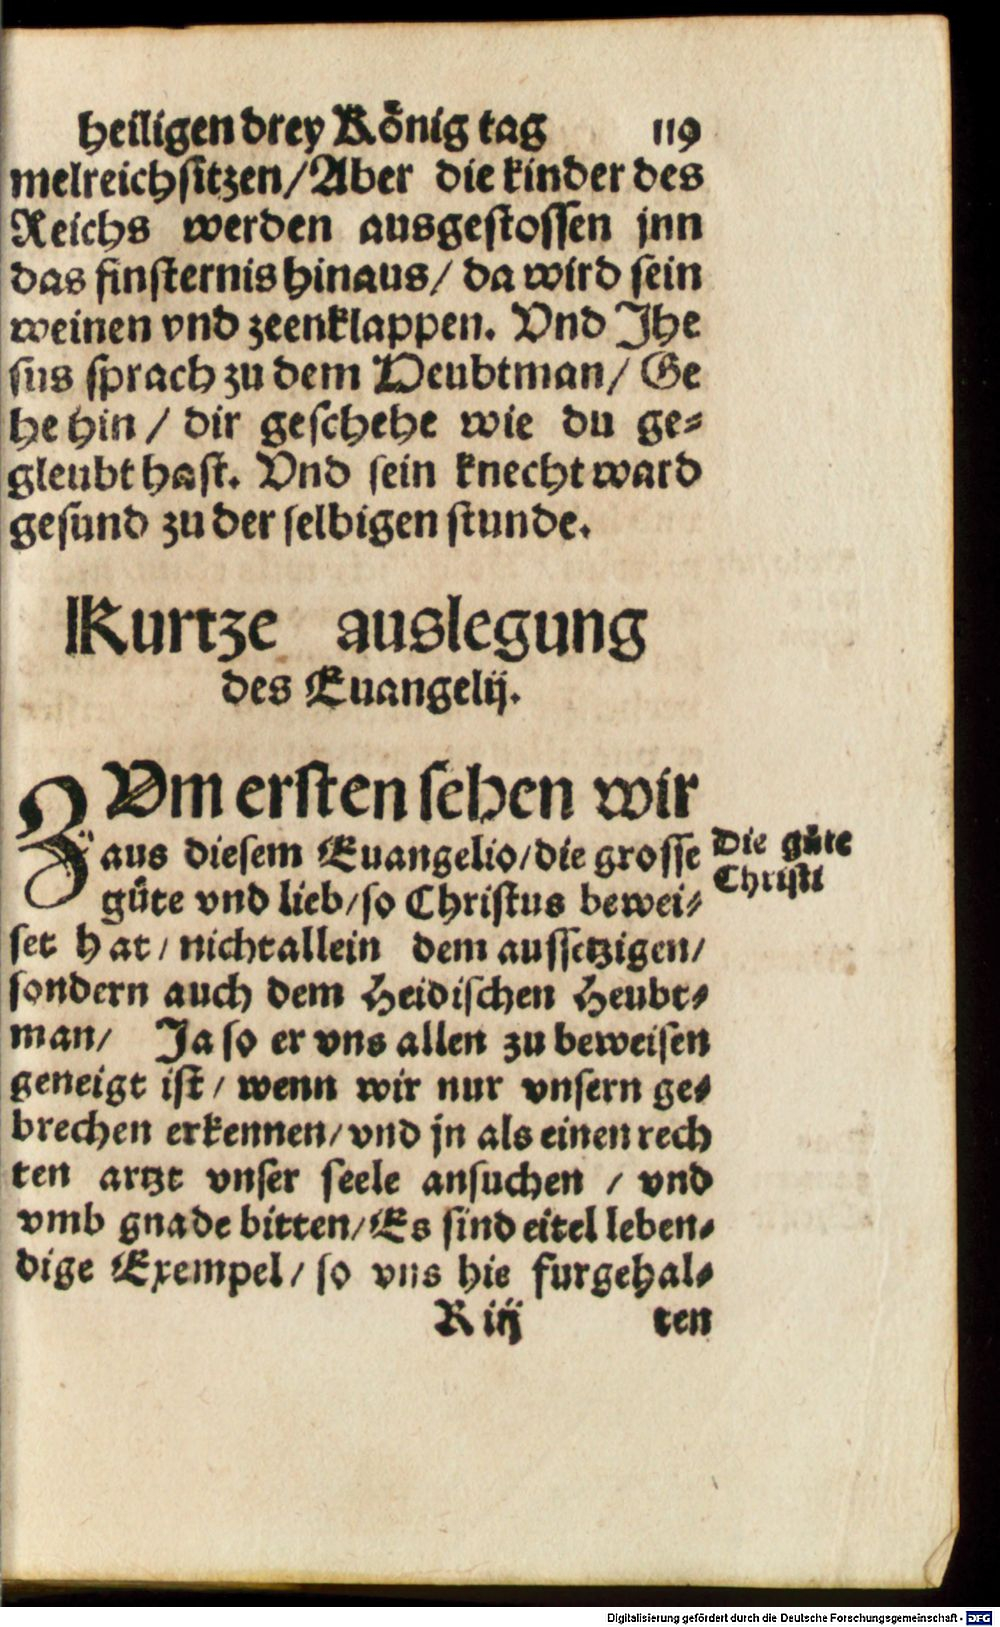 heiligen drey König tag 119
melreich sitzen/ Aber die kinder des
Reichs werden ausgestossen jnn
das finsternis hinaus/ da wird sein
weinen vnd zeenklappen. Vnd Jhe
sus sprach zu dem Heubtman/ Ge
he hin / dir geschehe wie du ge-
gleubt hast. Vnd sein knecht ward
gesund zu der selbigen stunde.
Kurtze auslegung
des Euangelij.
ZVm ersten sehen wir
aus diesem Euangelio/ die grosse
güte vnd lieb/ so Christus bewei-
set hat/ nicht allein dem aussetzigen/
sondern auch dem Heidischen Heubt-
man/ Ja so er vns allen zu beweisen
geneigt ist/ wenn wir nur vnsern ge-
brechen erkennen/ vnd jn als einen rech
ten artzt vnser seele ansuchen / vnd
vmb gnade bitten/ Es sind eitel leben-
dige Exempel/ so vns hie furgehal-
R iij ten
Die güte
Christi
Digitalisierung gefördert durch die Deutsche Forschungsgemeinschaft - DFG